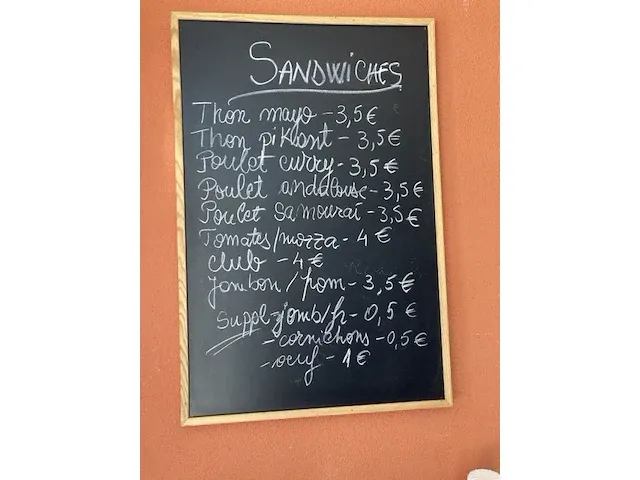 SANDWICHES
Thon mayo - 3,5 €
Thon pikant - 3,5 €
Poulet curry - 3,5 €
Poulet andalouse - 3,5 €
Poulet Samouraï - 3,5 €
Tomates/mozza - 4 €
club - 4 €
Jambon / fromage - 3,5 €
Suppl - jomb/fr - 0,5 €
- cornichons - 0,5 €
- oeuf - 1 €